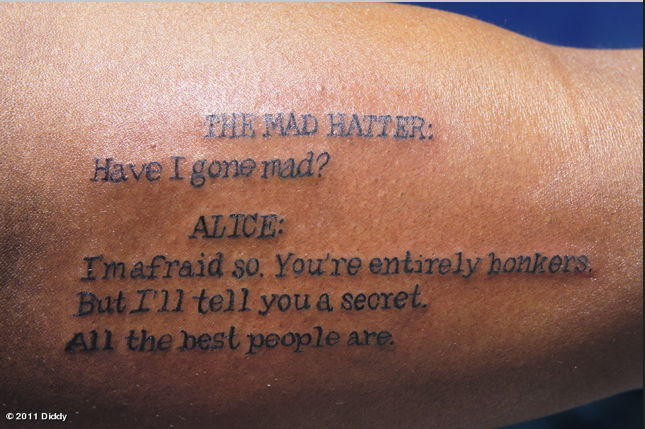 THE MAD HATTER:
Have I gone mad?
ALICE:
I'm afraid so. You're entirely bonkers.
But I'll tell you a secret.
All the best people are.
© 2011 Diddy